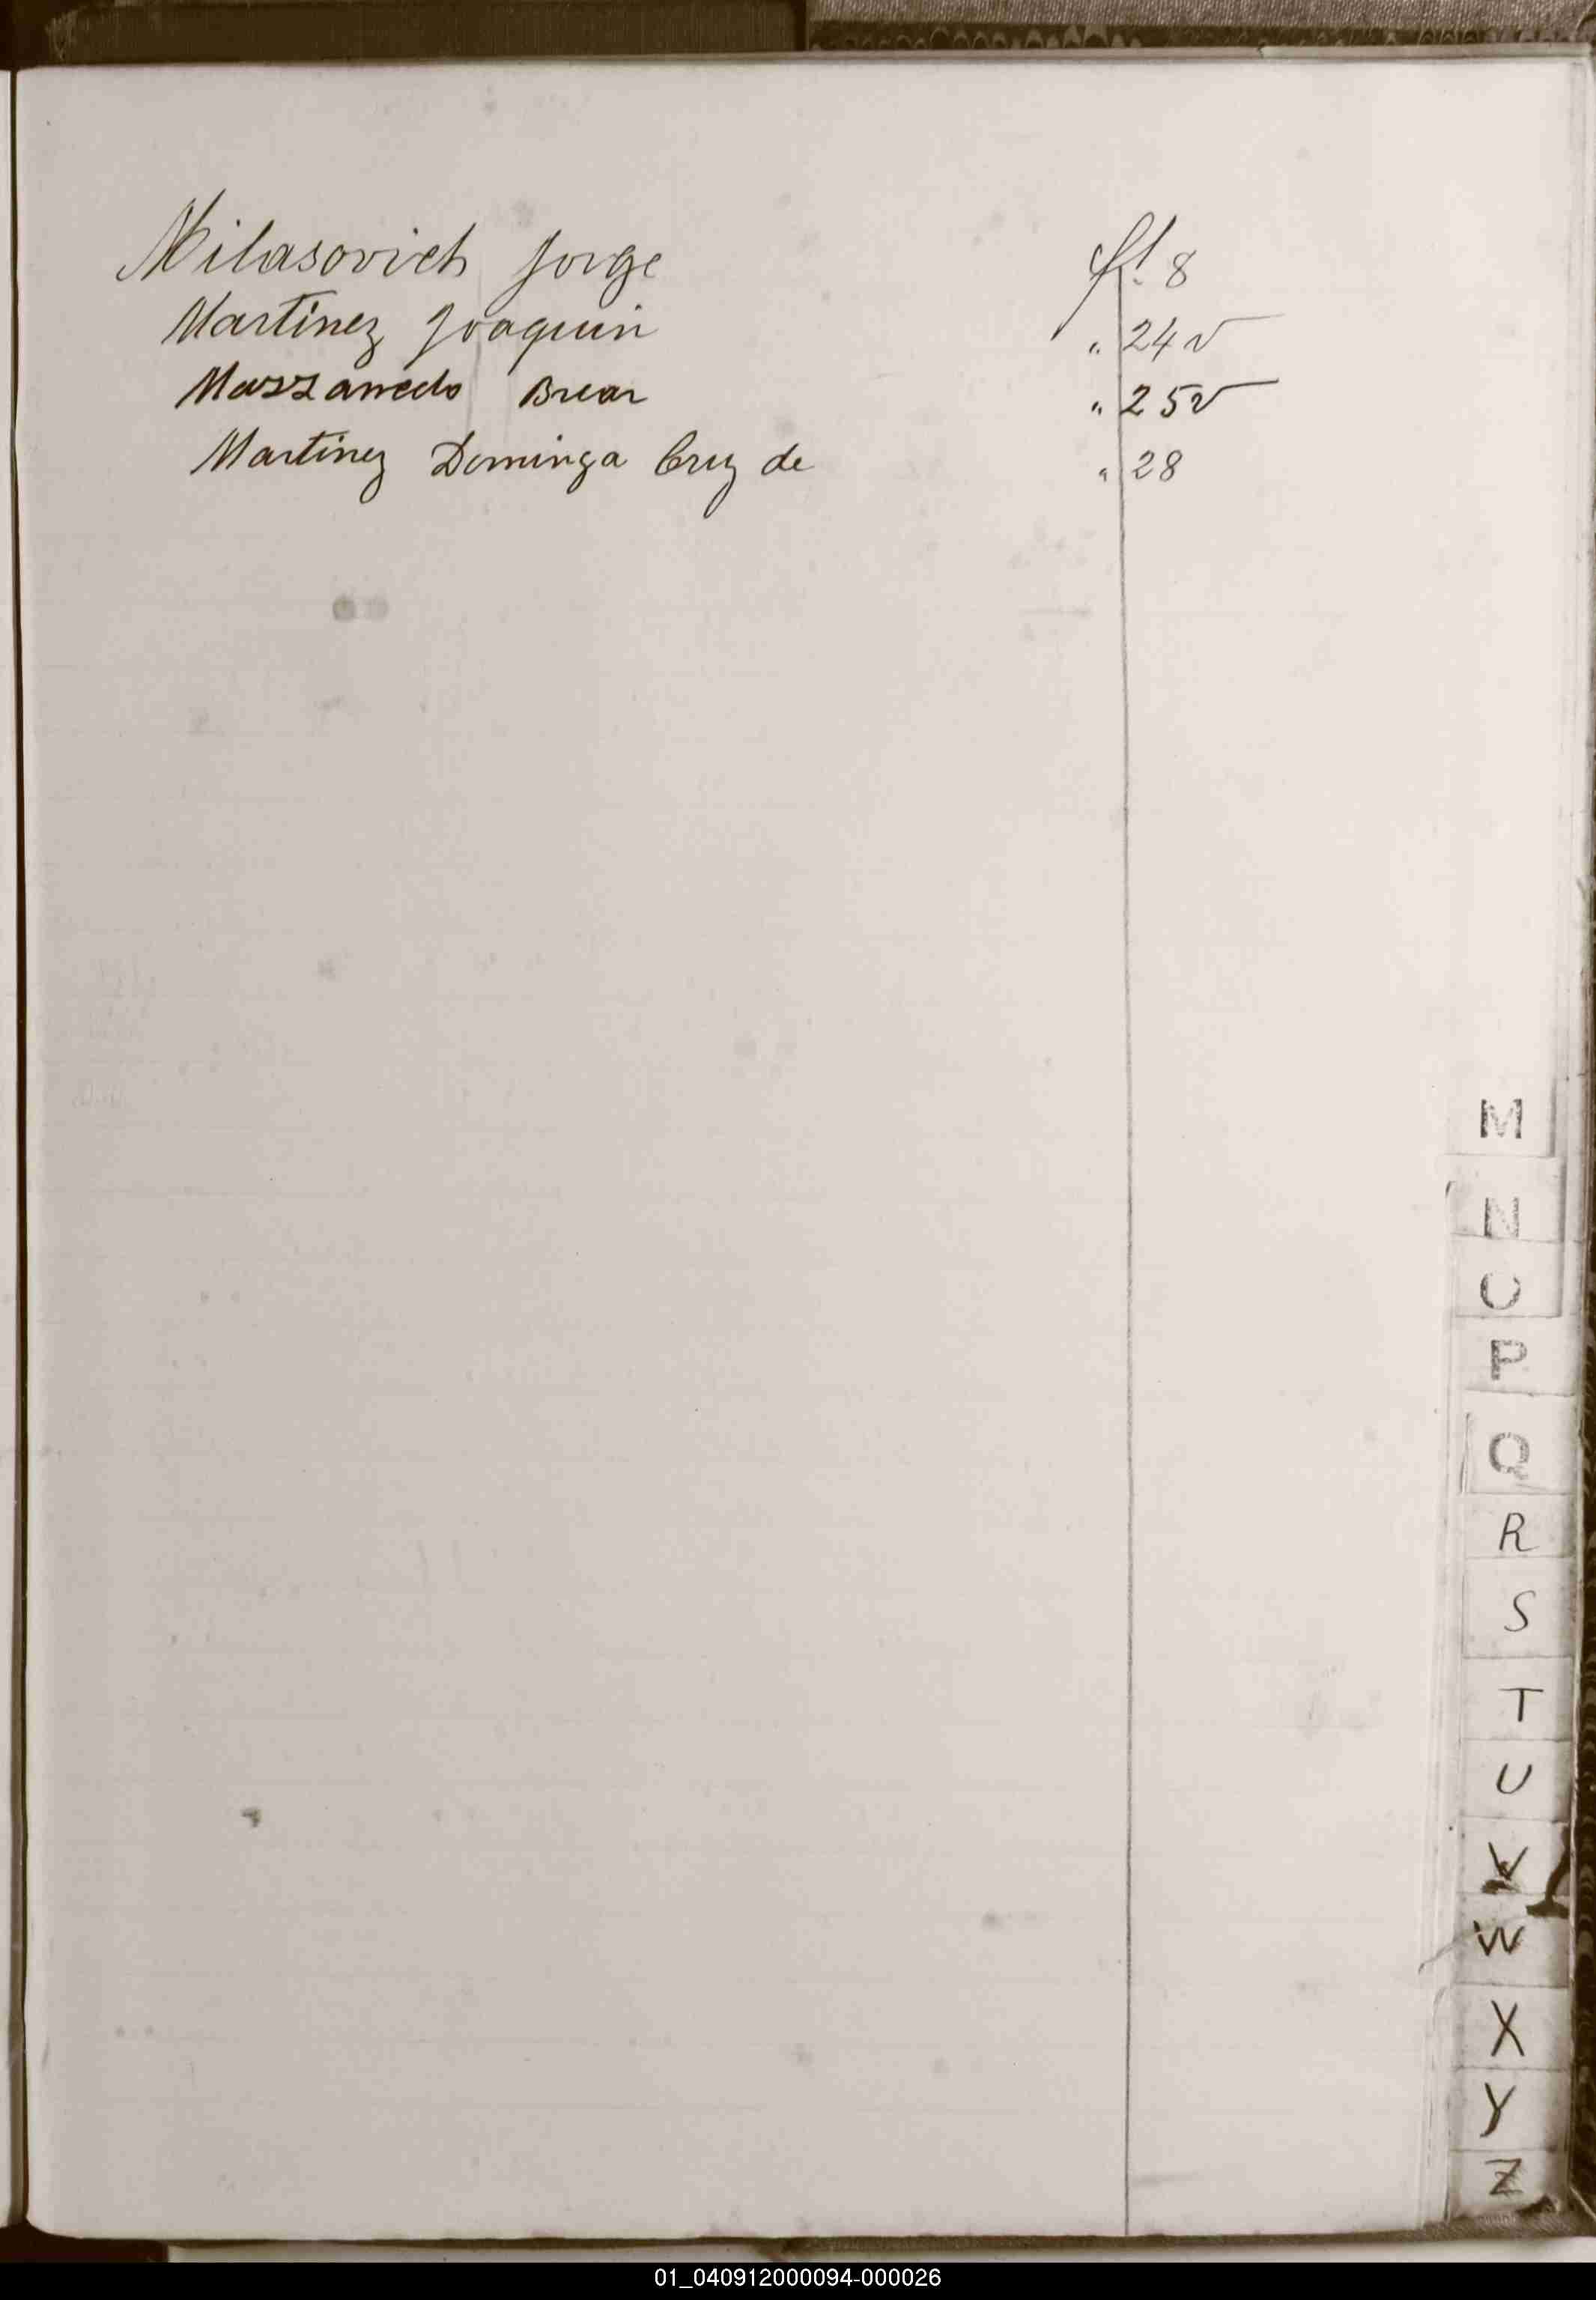 Milasovich Jorge fs. 8
Martinez Joaquin " 24 v
Mazzarredo " 25 v
Martinez Dominga Cruz de " 28
M
N
O
P
Q
R
S
T
U
V
W
X
Y
Z
01_040912000094-000026